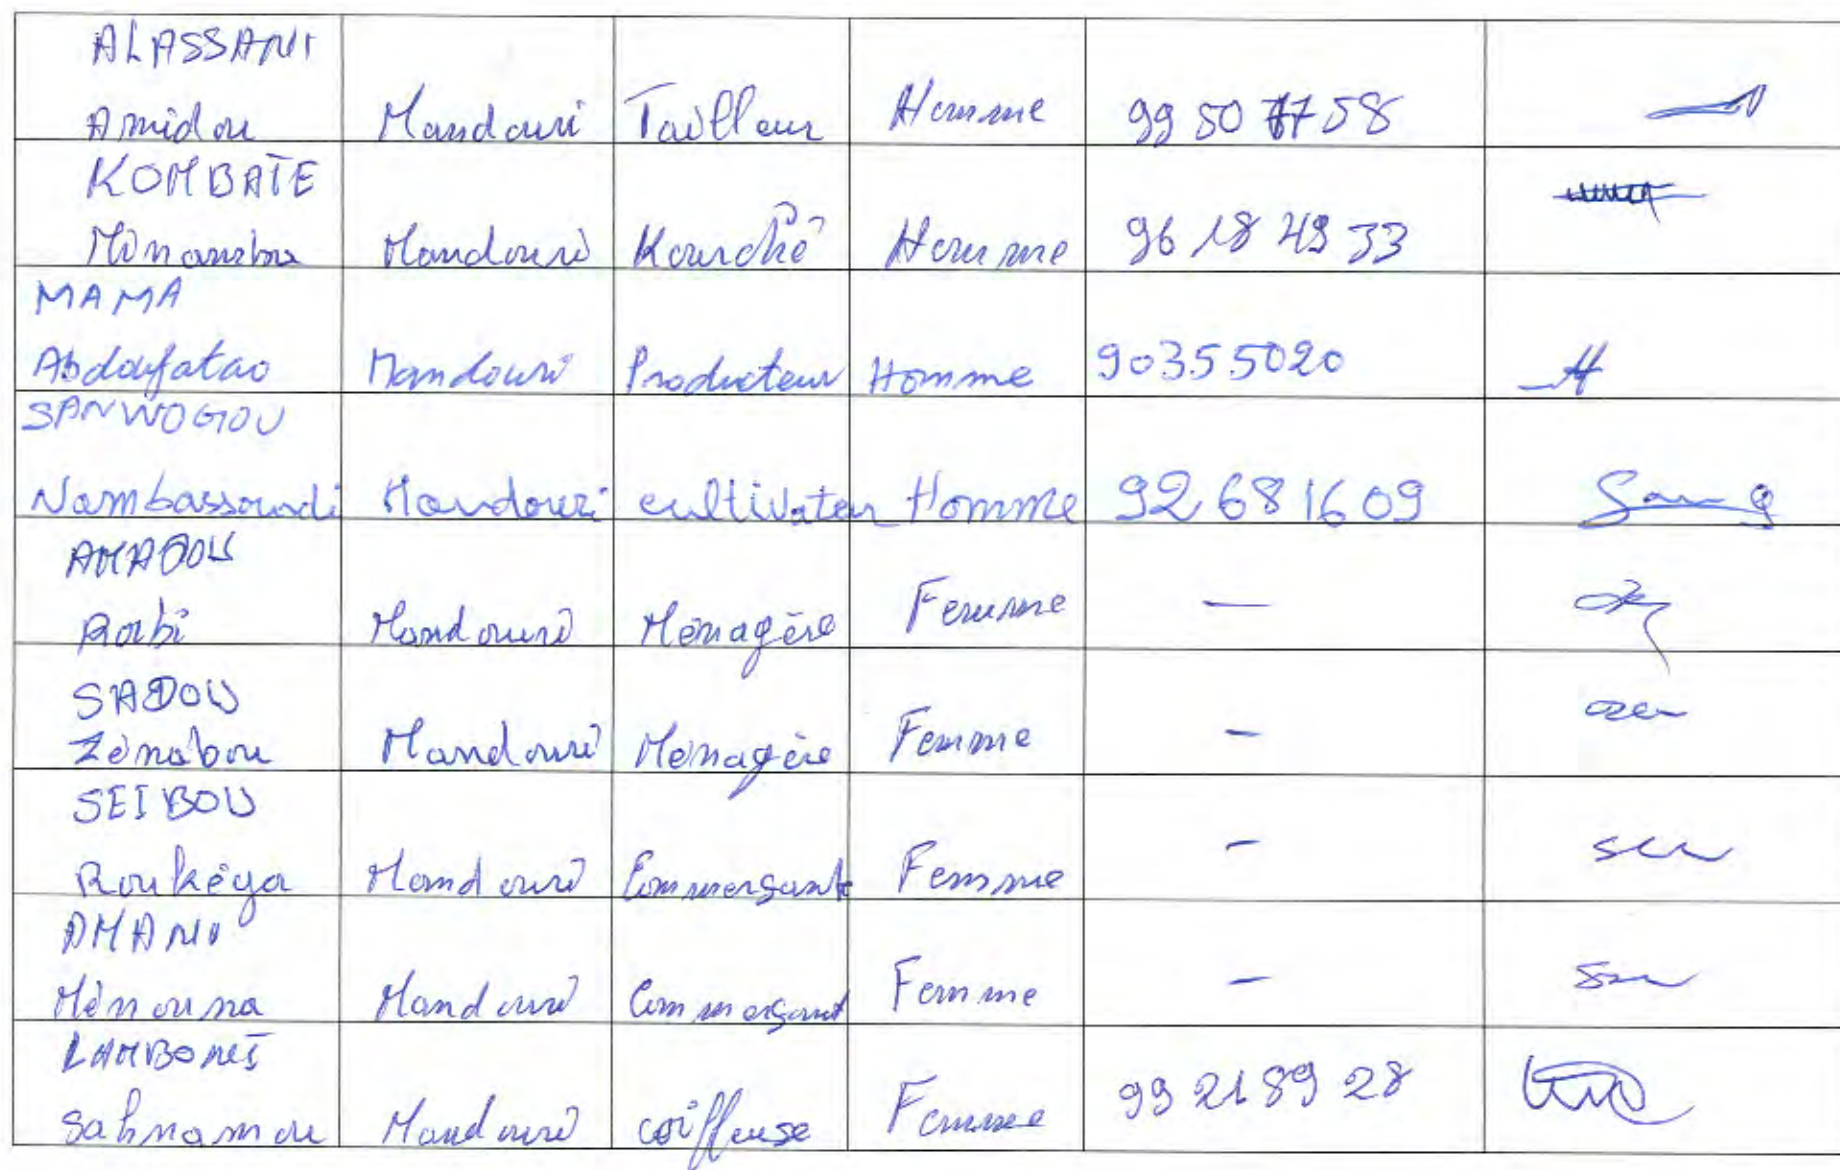 ALASSANI
Amidou Mandouri Tailleur Homme 99 50 77 58
KOMBATE
Minanibou Mandouri Homme 96 18 49 33
MAMA
Abdoufatao Mandouri Producteur Homme 90355020
SANWOGOU
Nambassoundi Mandouri cultivateur Homme 92 68 16 09
AMADOU
Rabi Mandouri Ménagère Femme —
SADOU
Zénabou Mandouri Ménagère Femme -
SEIBOU
Roukéya Mandouri Commerçant Femme -
AMANI
Ménouna Mandouri Commerçant Femme -
LAMBONI
Sahnamou Mandouri coiffeuse Femme 99 21 89 28